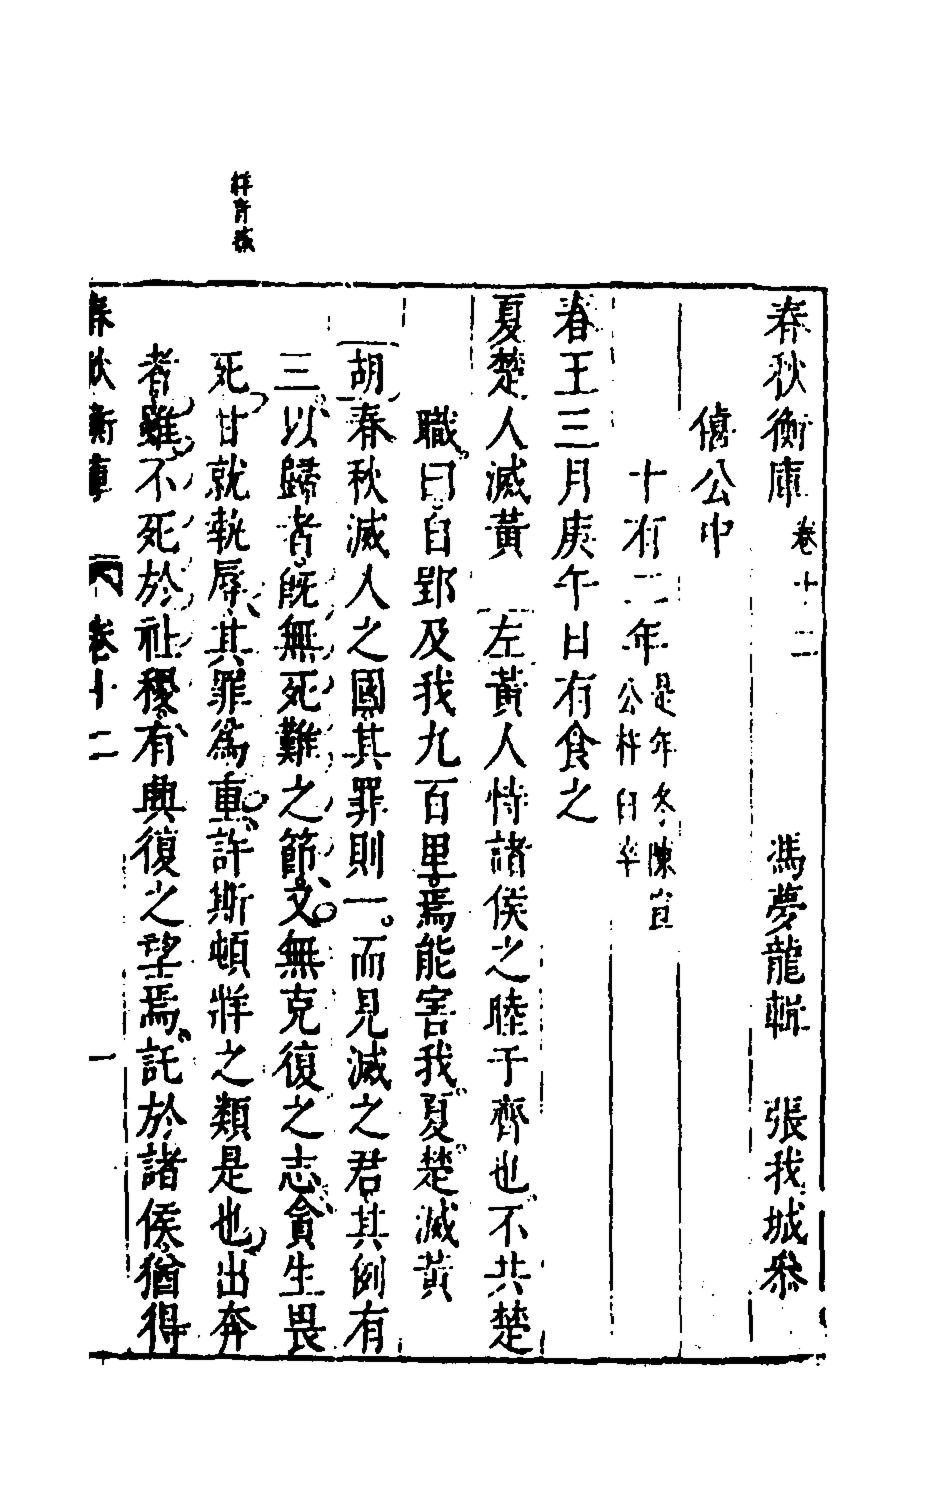 春秋衡庫 卷十二 馮夢龍輯 張我城叅
僖公中
十有二年 是年冬陳宣公杵臼卒
春王三月庚午日有食之
夏楚人滅黃 左黃人恃諸侯之睦于齊也不共楚
職曰自郢及我九百里焉能害我夏楚滅黃
胡春秋滅人之國其罪則一而見滅之君其例有
三以歸者既無死難之節又無克復之志貪生畏
死甘就執辱其罪爲重許斯頓牂之類是也出奔
者雖不死於社稷有典復之望焉託於諸侯猶得
春秋衡庫 卷十二 一
牂音